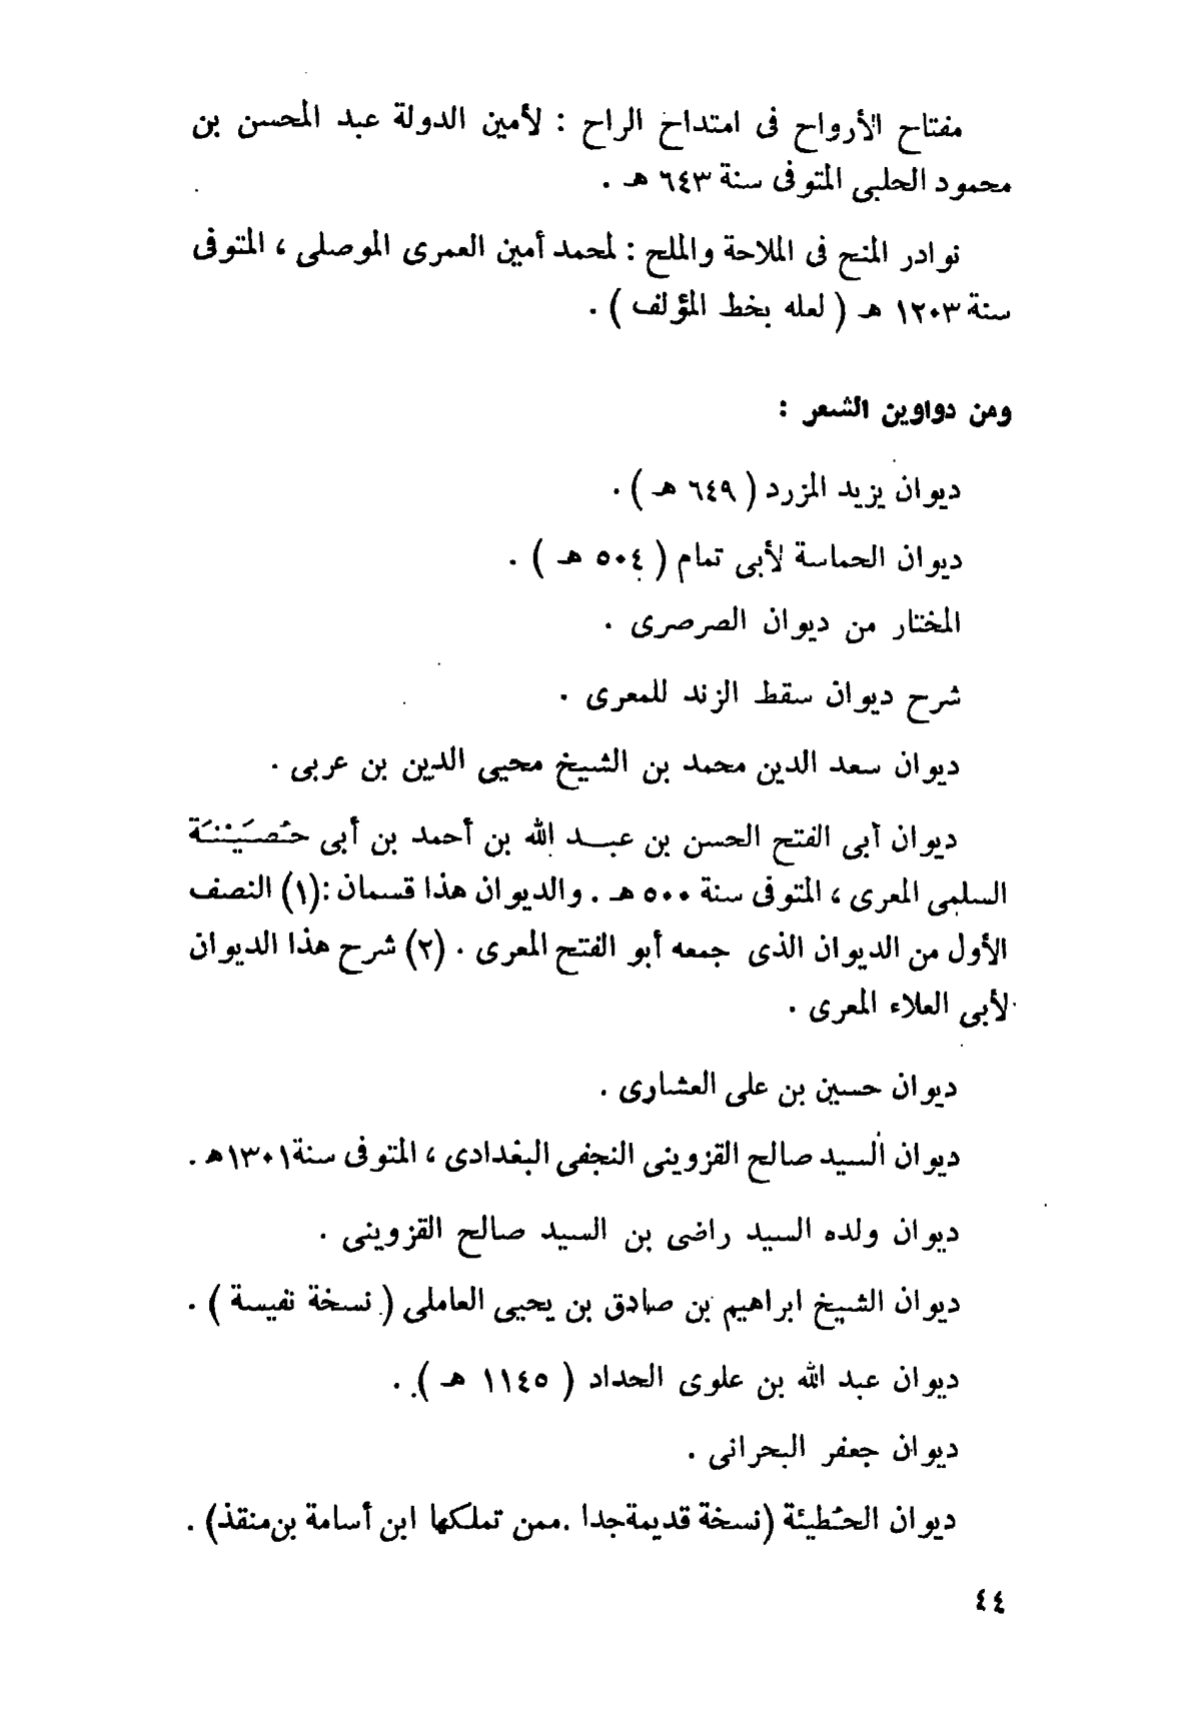 مفتاح الأرواح فى امتداح الراح : لأمين الدولة عبد المحسن بن
محمود الحلبي المتوفى سنة ٦٤٣ هـ .
نوادر المنح فى الملاحة والملح : لمحمد أمين العمرى الموصلى ، المتوفى
سنة ١٢٠٣ هـ ( لعله بخط المؤلف ) .
ومن دواوين الشعر :
ديوان يزيد المزرد ( ٦٤٩ هـ ) .
ديوان الحماسة لأبى تمام ( ٥٠٤ هـ ) .
المختار من ديوان الصرصرى .
شرح ديوان سقط الزند للمعرى .
ديوان سعد الدين محمد بن الشيخ محيى الدين بن عربى .
ديوان أبى الفتح الحسن بن عبد الله بن أحمد بن أبى حُصَيْنَة
السلمى المعرى ، المتوفى سنة ٥٠٠ هـ . والديوان هذا قسمان :(١) النصف
الأول من الديوان الذى جمعه أبو الفتح المعرى . (٢) شرح هذا الديوان
لأبى العلاء المعرى .
ديوان حسين بن على العشارى .
ديوان السيد صالح القزوينى النجفى البغدادى ، المتوفى سنة ١٣٠١هـ .
ديوان ولده السيد راضى بن السيد صالح القزوينى .
ديوان الشيخ ابراهيم بن صادق بن يحيى العاملى ( نسخة نفيسة ) .
ديوان عبد الله بن علوى الحداد ( ١١٤٥ هـ ) .
ديوان جعفر البحرانى .
ديوان الحُطيئة (نسخة قديمة جدا . ممن تملكها ابن أسامة بن منقذ) .
٤٤